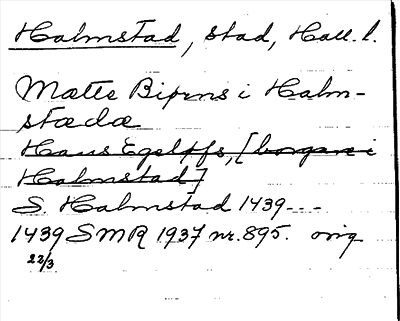 Halmstad, stad, Hall. l.
Matte Bipins i Halm-
stæda
Hans Egelsfs, [borgare i
Halmstad]
S. Halmstad 1439---
1439 SMR 1937 nr. 895. orig
22/3